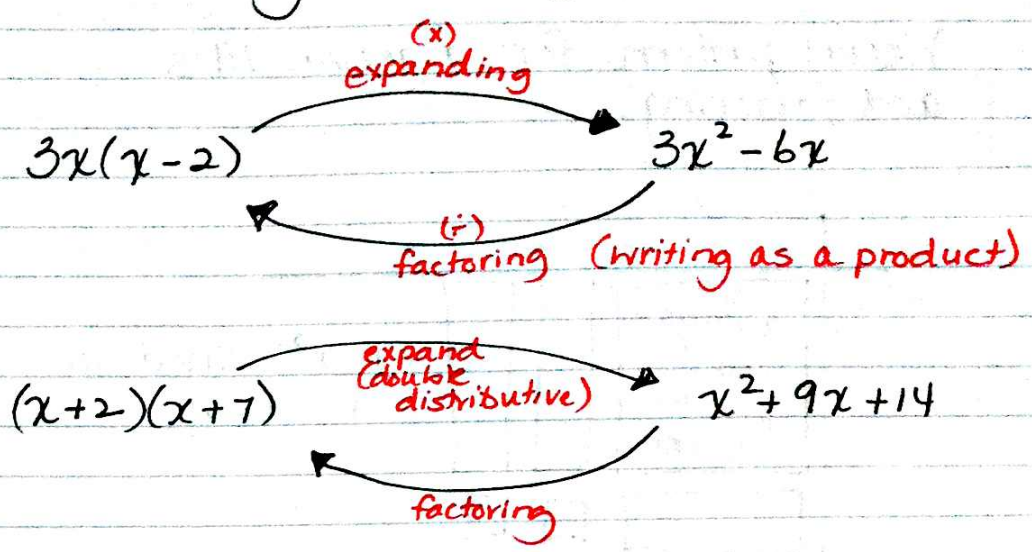 (x)
expanding
3x(x-2)
3x²-6x
(÷)
factoring (writing as a product)
expand
(double
distributive)
(x+2)(x+7)
x²+9x+14
factoring